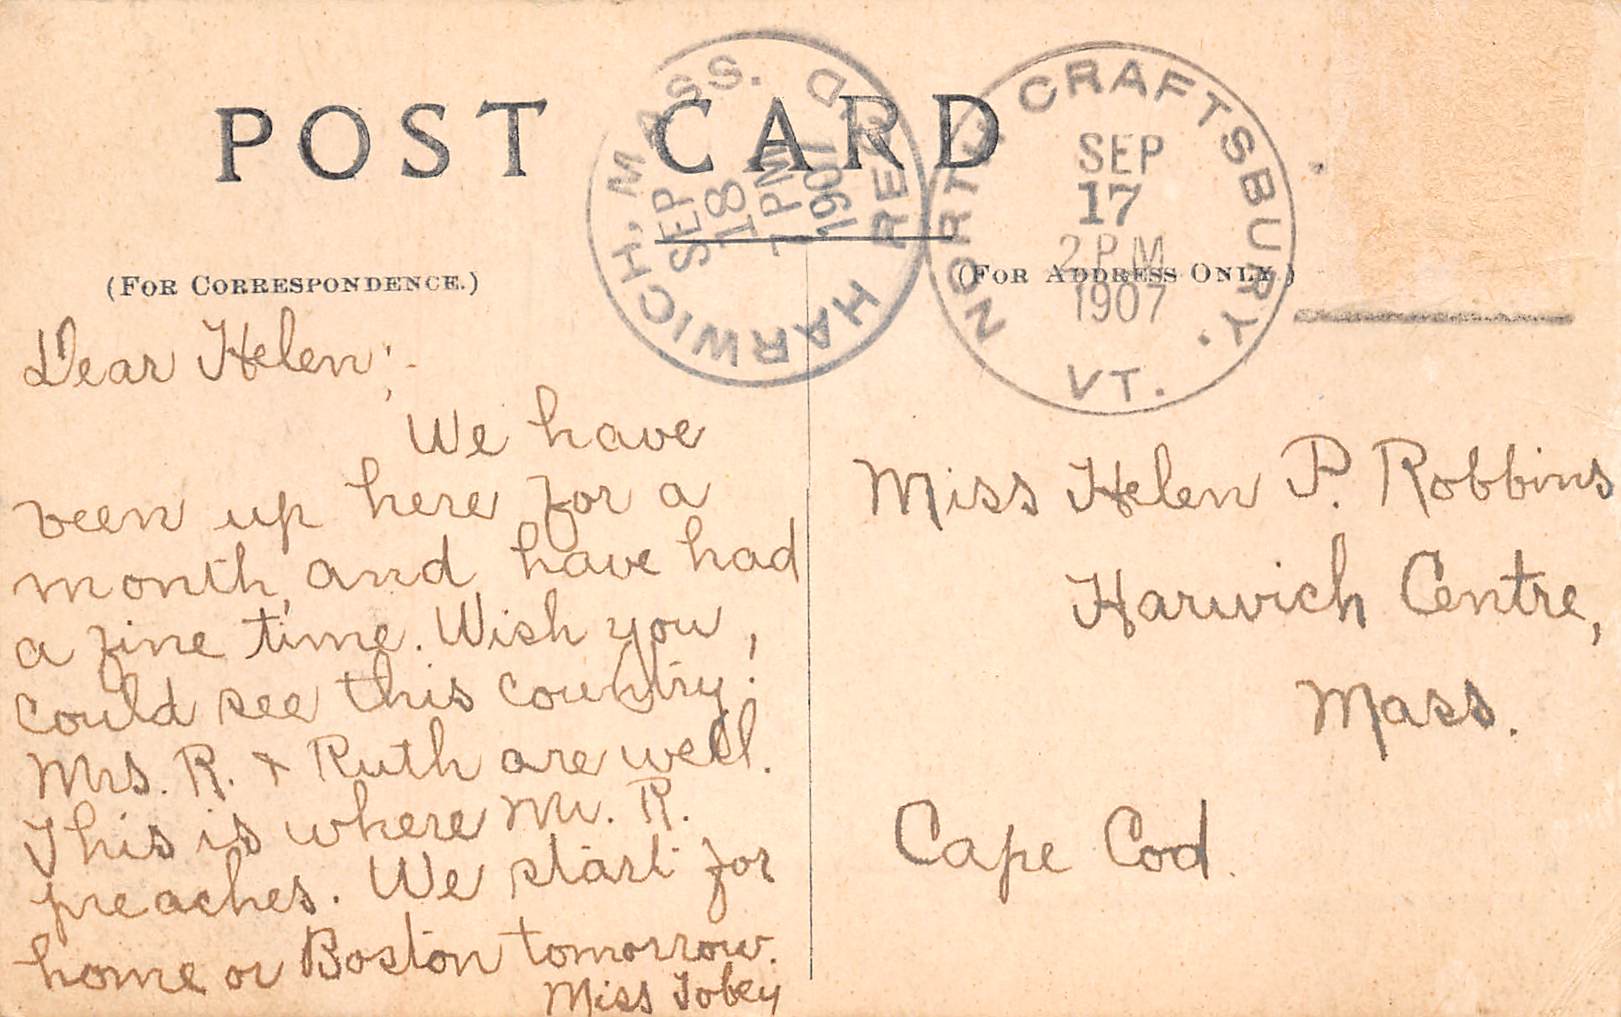 POST CARD
HARWICH, MASS. REC'D.
SEP
18
7 PM
1907
NORTH CRAFTSBURY. VT.
SEP
17
2 PM
1907
(FOR CORRESPONDENCE.)
(FOR ADDRESS ONLY.)
Dear Helen;-
We have
been up here for a
month, and have had
a fine time. Wish you,
could see this country!
Mrs. R. + Ruth are well.
This is where Mr. R.
preaches. We start for
home or Boston tomorrow.
Miss Tobey
Miss Helen P. Robbins
Harwich Centre,
Mass.
Cape Cod.